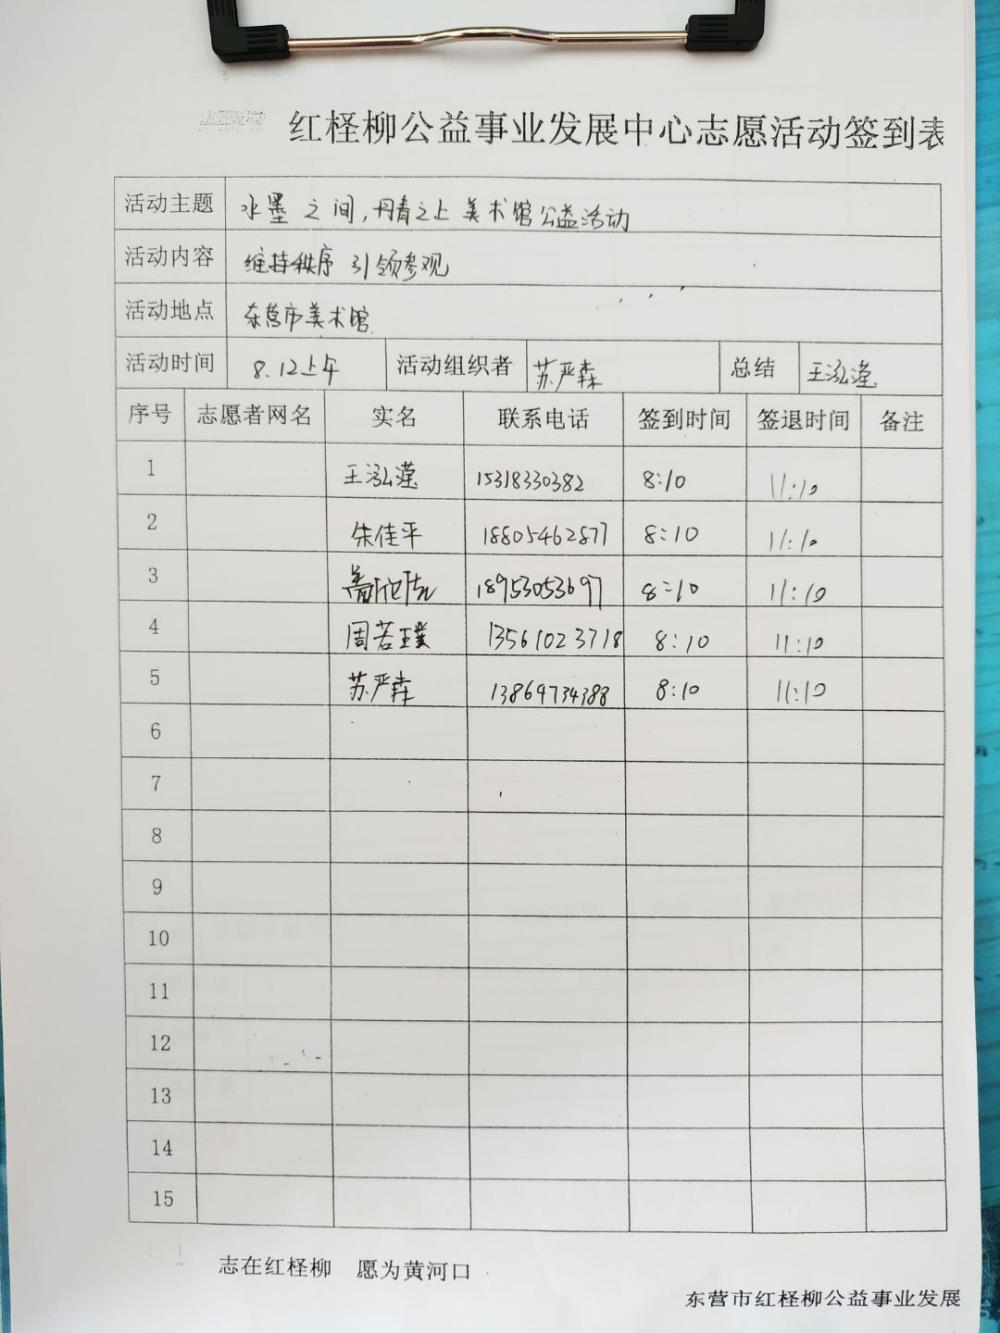 红柽柳公益事业发展中心志愿活动签到表
活动主题 水墨之间,丹青之上 美术馆公益活动
活动内容 维持秩序 引领参观
活动地点 东营市美术馆
活动时间 8.12上午 活动组织者 苏严森 总结 王泓滢
序号 志愿者网名 实名 联系电话 签到时间 签退时间 备注
1 王泓滢 15318330382 8:10 11:10
2 朱佳平 18805462877 8:10 11:10
3 18953053697 8:10 11:10
4 周若璞 13561023718 8:10 11:10
5 苏严森 13864734388 8:10 11:10
6
7
8
9
10
11
12
13
14
15
志在红柽柳 愿为黄河口
东营市红柽柳公益事业发展